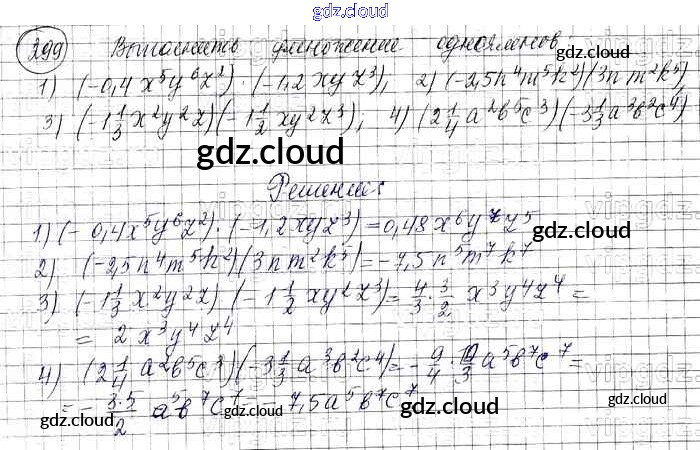 gdz.cloud
299 Выполнить умножение одночленов
1) (-0,4x⁵y⁶z²)·(-1,2xyz³); 2) (-2,5n⁴m⁵k²)(3nm²k⁵)
3) (-1 1/3 x²y²z)(-1 1/2 xy²z³); 4) (2 1/4 a²b⁵c³)(-3 1/3 a³b²c⁴)
Решение
1) (-0,4x⁵y⁶z²)·(-1,2xyz³)=0,48x⁶y⁷z⁵
2) (-2,5n⁴m⁵k²)(3nm²k⁵)=-7,5n⁵m⁷k⁷
3) (-1 1/3 x²y²z)(-1 1/2 xy²z³)= 4/3 · 3/2 x³y⁴z⁴ =
= 2x³y⁴z⁴
4) (2 1/4 a²b⁵c³)(-3 1/3 a³b²c⁴)= - 9/4 · 10/3 a⁵b⁷c⁷ =
= - 3·5/2 a⁵b⁷c⁷ = -7,5a⁵b⁷c⁷
gdz.cloud
gdz.cloud
gdz.cloud
gdz.cloud
gdz.cloud
gdz.cloud
gdz.cloud
gdz.cloud